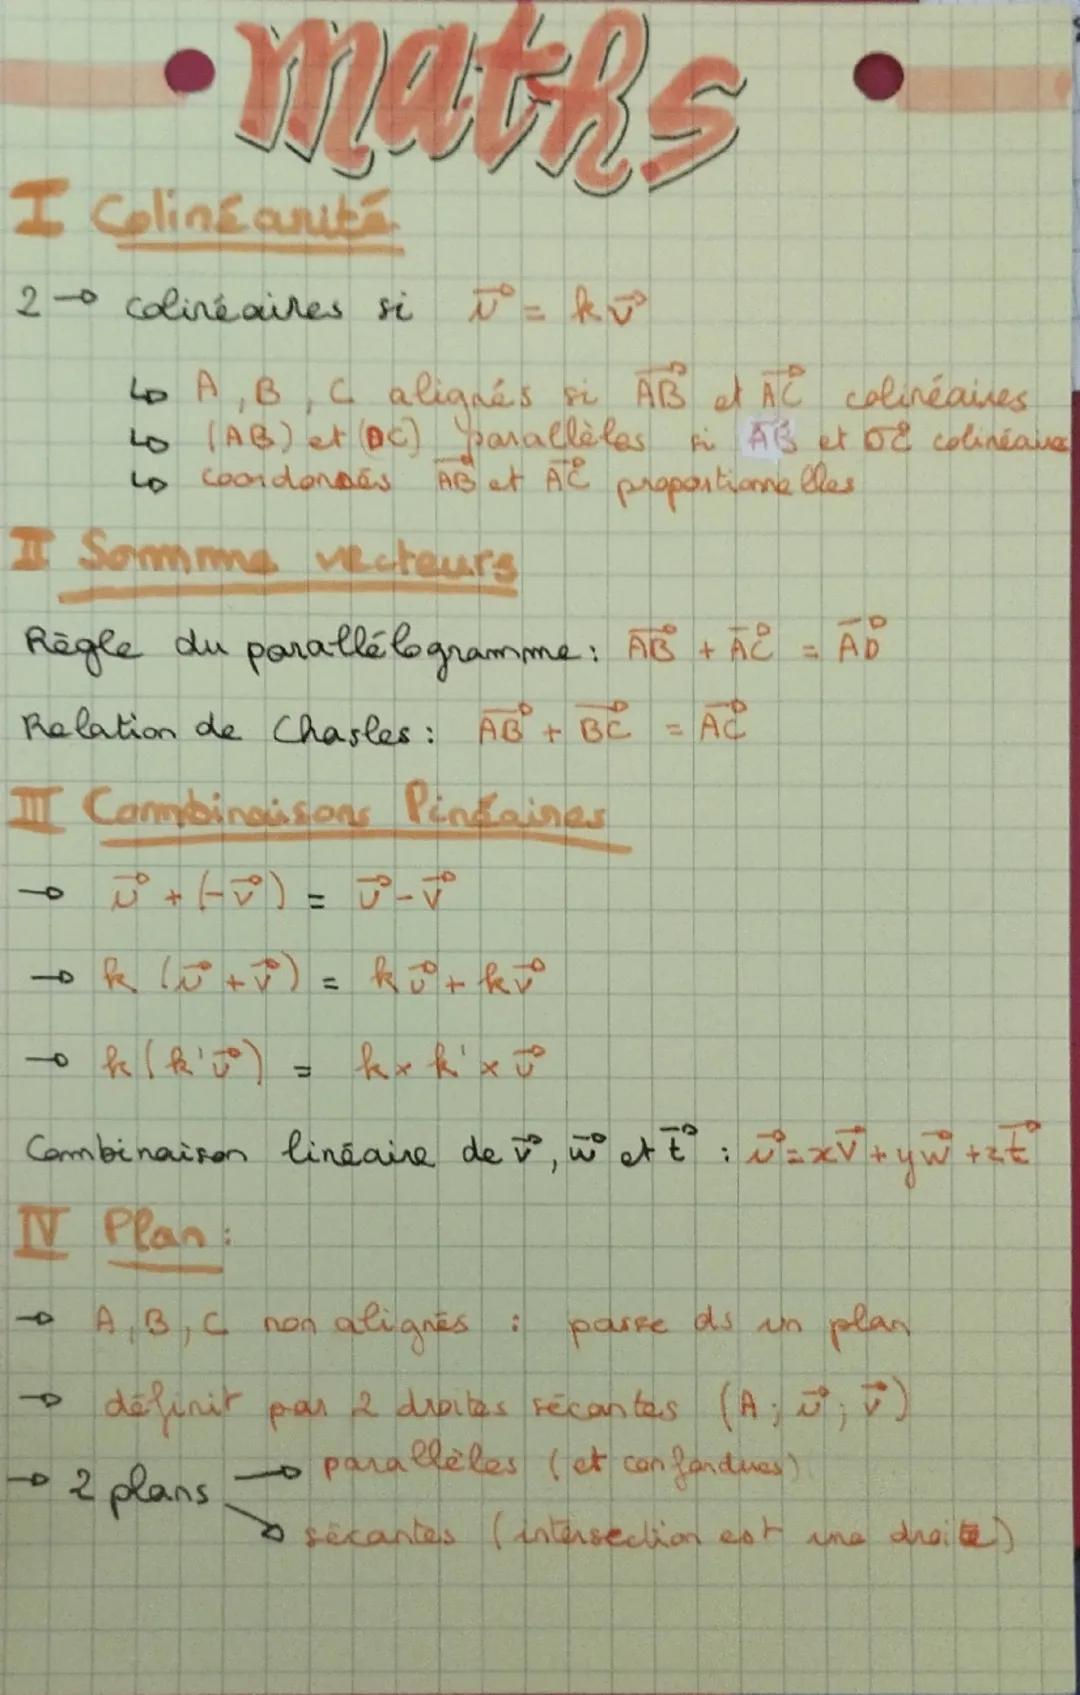 maths
I Colinéarité
2 → colinéaires si u⃗ = kv⃗
↳ A, B, C alignés si AB⃗ et AC⃗ colinéaires
↳ (AB) et (DC) parallèles si AB⃗ et DC⃗ colinéaires
↳ coordonées AB⃗ et AC⃗ proportionnelles
II Somme vecteurs
Règle du parallélogramme : AB⃗ + AC⃗ = AD⃗
Relation de Chasles : AB⃗ + BC⃗ = AC⃗
III Combinaisons linéaires
→ u⃗ + (-v⃗) = u⃗ - v⃗
→ k (u⃗ + v⃗) = ku⃗ + kv⃗
→ k (k'u⃗) = k × k' × u⃗
Combinaison linéaire de v⃗, w⃗ et t⃗ : u⃗ = xv⃗ + yw⃗ + zt⃗
IV Plan :
→ A, B, C non alignés : passe ds un plan
→ définit par 2 droites sécantes (A ; u⃗ ; v⃗)
→ 2 plans → parallèles (et confondues)
↘ sécantes (intersection est une droite)